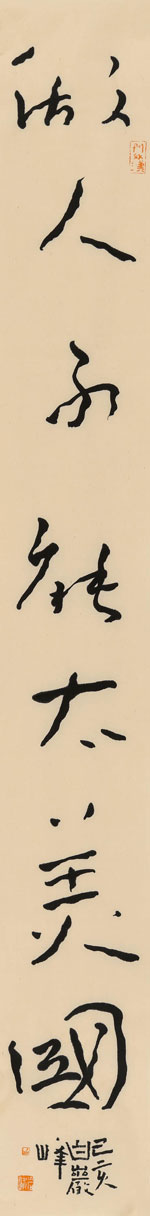 做人不能太美國
己亥
白巖
峰